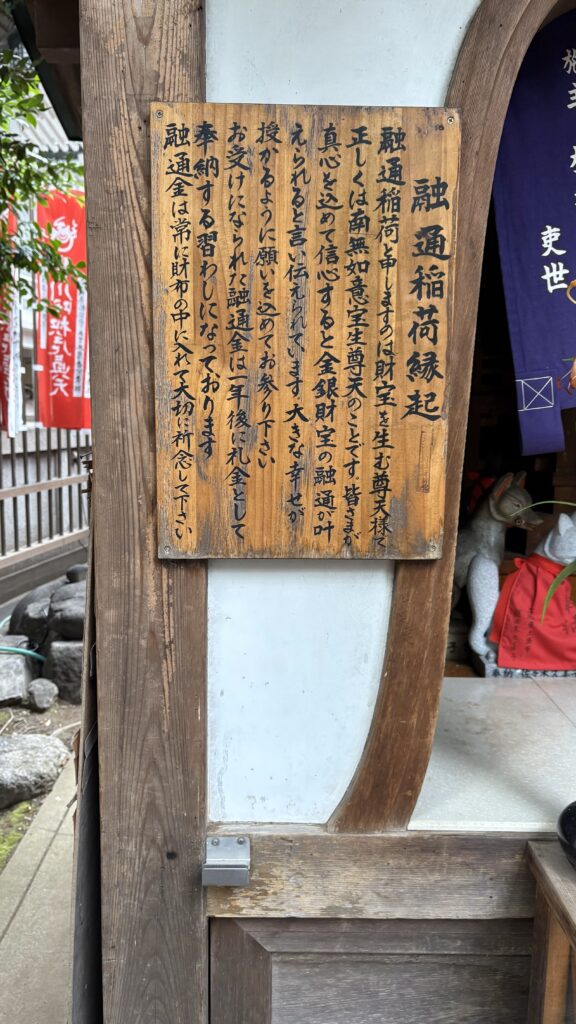 融通稲荷縁起
融通稲荷と申しますのは財宝を生む尊天様で
正しくは南無如意宝生尊天のことです。皆さまが
真心を込めて信心すると金銀財宝の融通が叶
えられると言い伝えられています 大きな幸せが
授かるように願いを込めてお参り下さい
お受けになられた融通金は一年後に礼金として
奉納する習わしになっております
融通金は常に財布の中に入れて大切に祈念して下さい
吏世